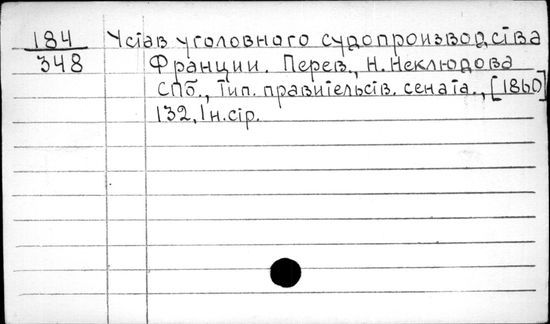 184 Устав уголовного судопроизводства
348 Франции. Перев., Н. Неклюдова
СПб., тип. правительств. сената., [1860]
132, 1 н. стр.